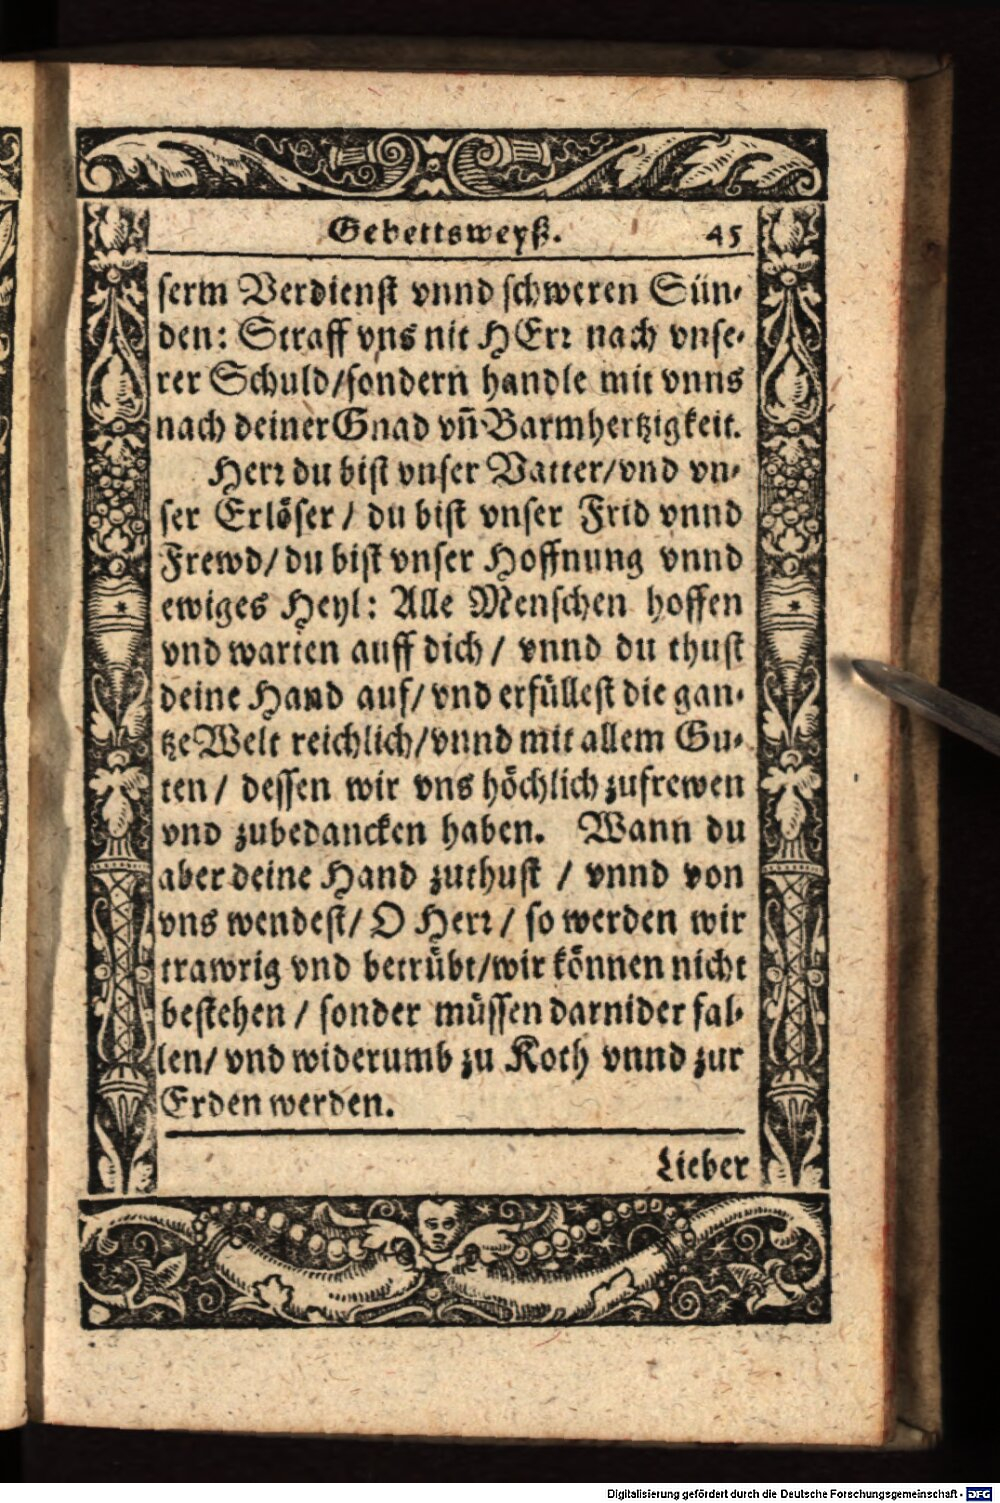 Gebettsweyß. 45
serm Verdienst vnnd schweren Sün-
den: Straff vns nit HErr nach vnse-
rer Schuld/sondern handle mit vnns
nach deiner Gnad vn̄ Barmhertzigkeit.
Herr du bist vnser Vatter/vnd vn-
ser Erlöser / du bist vnser Frid vnnd
Frewd/ du bist vnser Hoffnung vnnd
ewiges Heyl: Alle Menschen hoffen
vnd warten auff dich / vnnd du thust
deine Hand auf/ vnd erfüllest die gan-
tze Welt reichlich/vnnd mit allem Gu-
ten / dessen wir vns höchlich zufrewen
vnd zubedancken haben. Wann du
aber deine Hand zuthust / vnnd von
vns wendest/ O Herr / so werden wir
trawrig vnd betrübt/wir können nicht
bestehen / sonder müssen darnider fal-
len/ vnd widerumb zu Koth vnnd zur
Erden werden.
Lieber
Digitalisierung gefördert durch die Deutsche Forschungsgemeinschaft - DFG